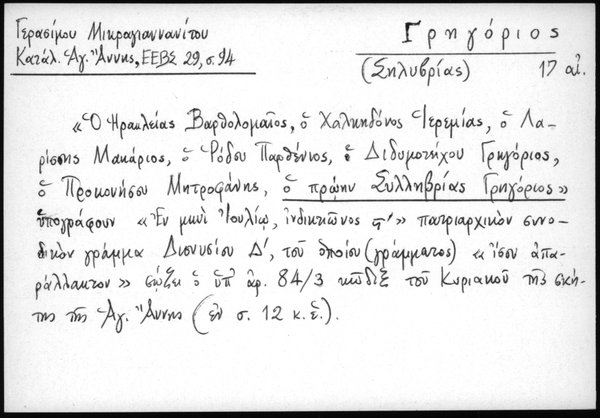 Γερασίμου Μικραγιαννανίτου
Κατάλ. Ἁγ. Ἄννης, ΕΕΒΣ 29, σ. 94
Γρηγόριος
(Σηλυβρίας) 17 αἰ.
«Ὁ Ἡρακλείας Βαρθολομαῖος, ὁ Χαλκηδόνος Ἱερεμίας, ὁ Λα-
ρίσσης Μακάριος, ὁ Ρόδου Παρθένιος, ὁ Διδυμοτήχου Γρηγόριος,
ὁ Προκονήσου Μητροφάνης, ὁ πρώην Συλληβρίας Γρηγόριος»
ὑπογράφουν «Ἐν μηνὶ Ἰουλίῳ, ἰνδικτιῶνος» πατριαρχικὸν συνο-
δικὸν γράμμα Διονυσίου Δ', τοῦ ὁποίου (γράμματος) «ἴσον ἀπα-
ράλλακτον» σῴζει ὁ ὑπ' ἀρ. 84/3 κῶδιξ τοῦ Κυριακοῦ τῆς σκή-
της τῆς Ἁγ. Ἄννης (ἐν σ. 12 κ. ἑ.).